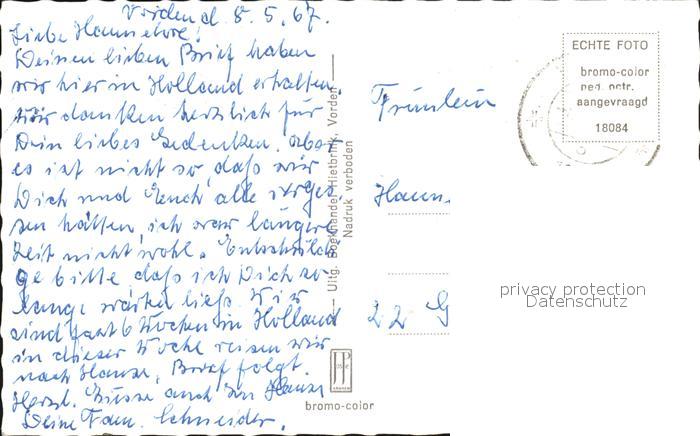 Vorden d. 8.5.67.
Liebe Hannelore!
Deinen lieben Brief haben
wir hier in Holland erhalten.
Wir danken herzlich für
Dein liebes Gedenken. Aber
es ist nicht so, daß wir
Dich und Euch alle verges-
sen hätten, ich war längere
Zeit nicht wohl. Entschuldi-
ge bitte daß ich Dich so
lange warten ließ. Wir
sind fast 6 Wochen in Holland
in dieser Woche reisen wir
nach Hause, Brief folgt.
Herzl. Grüsse auch zu Hause
Deine Fam. Schneider.
Uitg. Boekhandel Hietbrink, Vorden
Nadruk verboden
JP
bromo-color
Fräulein
Hann
22 G
ECHTE FOTO
bromo-color
ned. octr.
aangevraagd
18084
privacy protection
Datenschutz